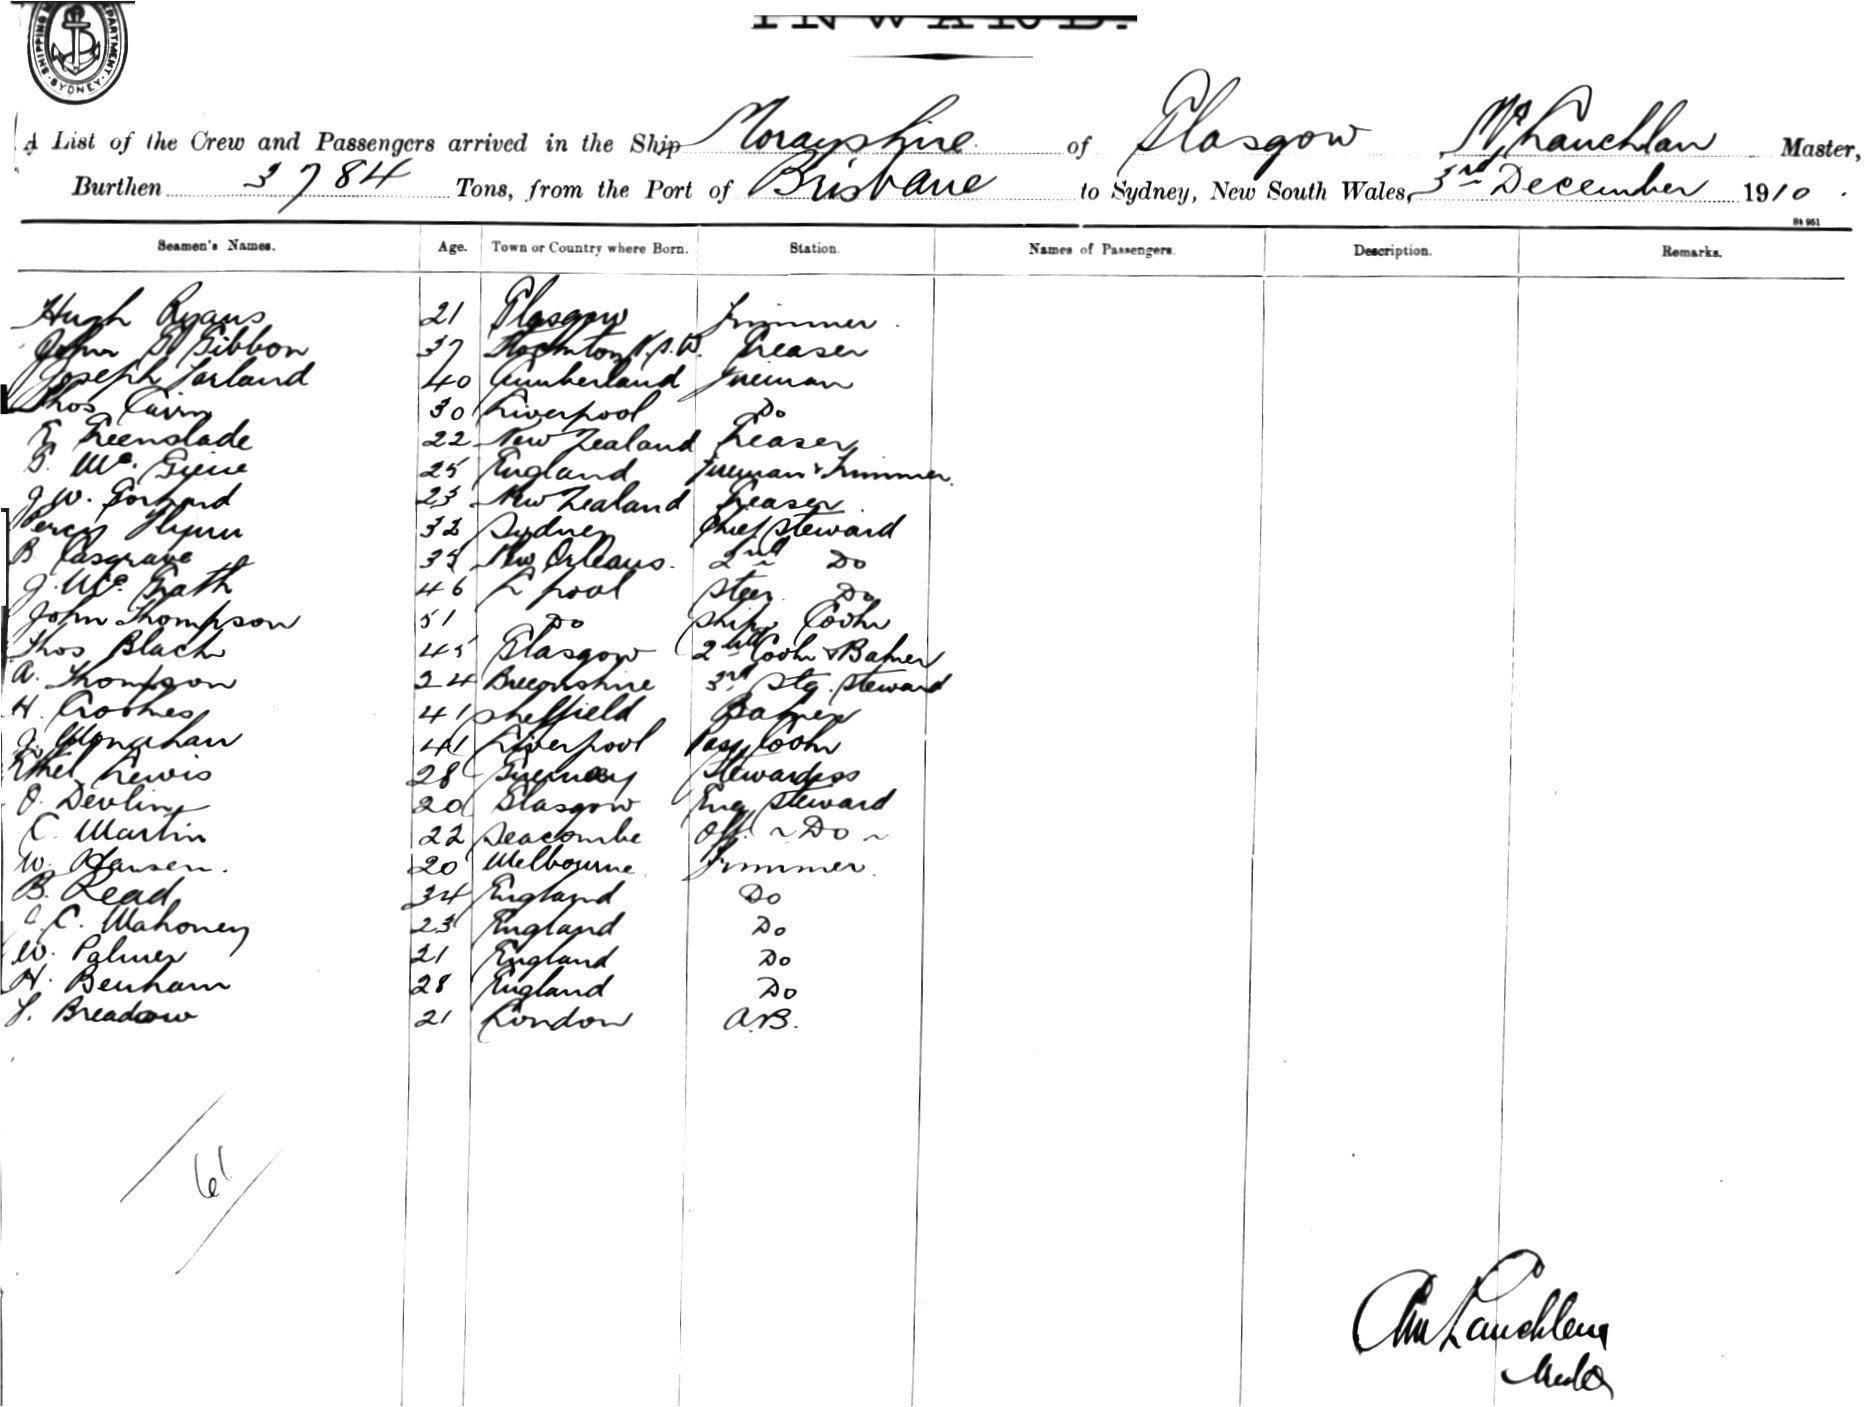 SHIPPING DEPARTMENT SYDNEY
INWARD.
A List of the Crew and Passengers arrived in the Ship Morayshire of Glasgow McLauchlan Master,
Burthen 3784 Tons, from the Port of Brisbane to Sydney, New South Wales, 3rd December 1910.
St 961
Seamen's Names. Age. Town or Country where Born. Station. Names of Passengers. Description. Remarks.
Hugh Ryans 21 Glasgow Trimmer.
John Gibbon 37 N.S.W. Greaser
Joseph Torland 40 Cumberland Fireman
Thos 30 Liverpool Do
Greenslade 22 New Zealand Greaser
Mc. 25 England Fireman & Trimmer.
J. W. 23 New Zealand Greaser
Percy Flynn 32 Sydney Chief Steward
B. Casgrave 35 New Orleans. 2nd Do
J. Mc. Grath 46 L'pool Steer. Do
John Thompson 51 Do Ship's Cook
Thos Black 45 Glasgow 2nd Cook & Baker
A. Thompson 24 3rd Stg. Steward
H. Crookes 41 Sheffield Baker
J. Monahan 41 Liverpool Pass. Cook
Ethel Lewis 28 Guernsey Stewardess
O. Devlin 20 Glasgow Eng. Steward
C. Martin 22 Seacombe Off. ~ Do ~
W. Hansen. 20 Melbourne. Trimmer.
B. Read 34 England Do
C. Mahoney 23 England Do
W. Palmer 21 England Do
H. Benham 28 England Do
Breadow 21 London A.B.
61
McLauchlan
Master